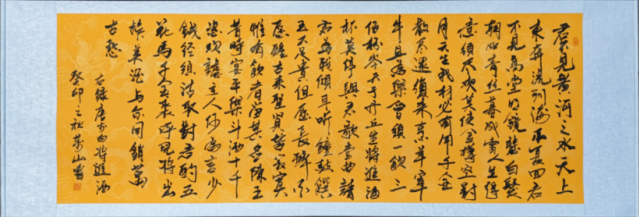 君不見黄河之水天上
來奔流到海不復回君
不見高堂明鏡悲白髮
朝如青絲暮成雪人生得
意須盡歡莫使金樽空對
月天生我材必有用千金
散盡還復來烹羊宰
牛且為樂會須一飲三
百杯岑夫子丹丘生將進酒
杯莫停與君歌一曲請
君為我傾耳聽鐘鼓饌
玉不足貴但愿長醉不
愿醒古來聖賢皆寂寞
惟有飲者留其名陳王
昔時宴平樂斗酒十千
恣歡謔主人何為言少
錢徑須沽取對君酌五
花馬千金裘呼兒將出
換美酒与爾同銷萬
古愁
右録唐李白將進酒
癸卯之秋山書